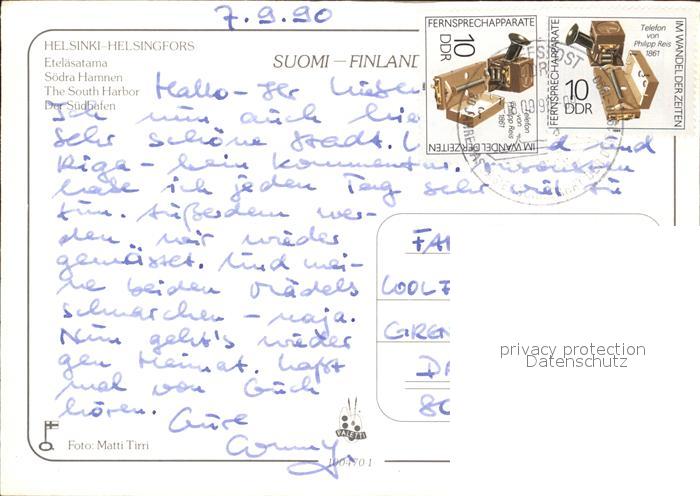 7.9.90
HELSINKI–HELSINGFORS
Eteläsatama
Södra Hamnen
The South Harbor
Der Südhafen
SUOMI – FINLAND
FERNSPRECHAPPARATE
10
DDR
Telefon
von
Philipp Reis
1861
IM WANDEL DER ZEITEN
FERNSPRECHAPPARATE
10
DDR
Telefon
von
Philipp Reis
1861
IM WANDEL DER ZEITEN
Hallo – Ihr Lieben
Ich nun auch hie
sehr schöne Stadt. und
Riga – kein Kommentar. Ansonsten
habe ich jeden Tag sehr viel zu
tun. Außerdem wer-
den wir wieder
gemästet. Und mei-
ne beiden Mädels
schnarchen – naja.
Nun geht's wieder
gen Heimat. Laßt
mal von Euch
hören. Eure
Conny.
FA
WOLF
GREN
DR
80
privacy protection
Datenschutz
Foto: Matti Tirri
PALETTI
1004701